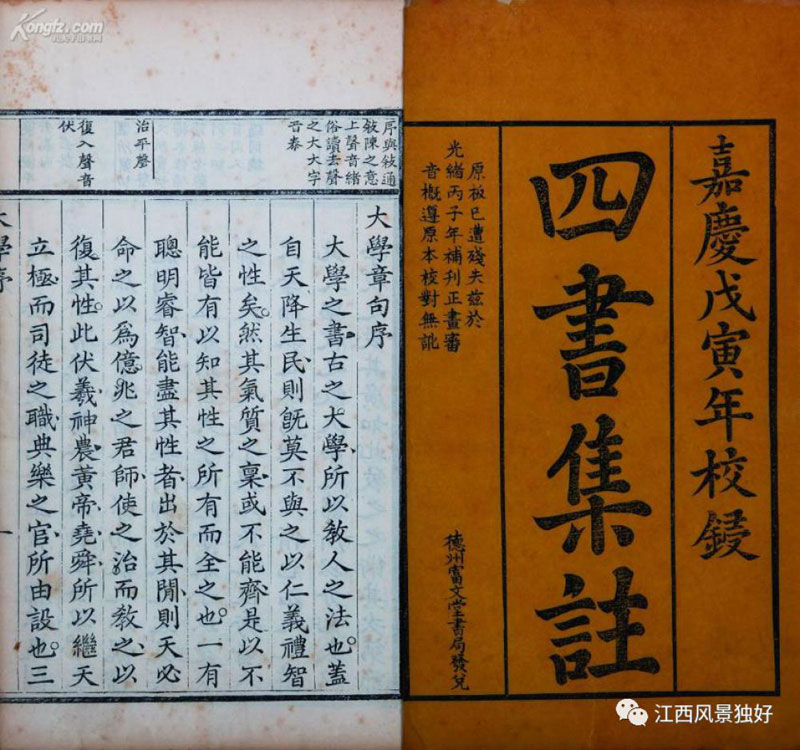 嘉慶戊寅年校鋟
四書集註
原板已遭殘失兹於
光緒丙子年補刊正畫審
音概遵原本校對無訛
德州富文堂書局發兌
序與敘通
敘陳之意
上聲音緒
俗讀去聲
之大大字
音泰
治平聲
復入聲音
伏
大學章句序
大學之書古之大學所以教人之法也蓋
自天降生民則旣莫不與之以仁義禮智
之性矣然其氣質之稟或不能齊是以不
能皆有以知其性之所有而全之也一有
聰明睿智能盡其性者出於其閒則天必
命之以爲億兆之君師使之治而教之以
復其性此伏羲神農黃帝堯舜所以繼天
立極而司徒之職典樂之官所由設也三
大學序
一
Kongfz.com
江西风景独好